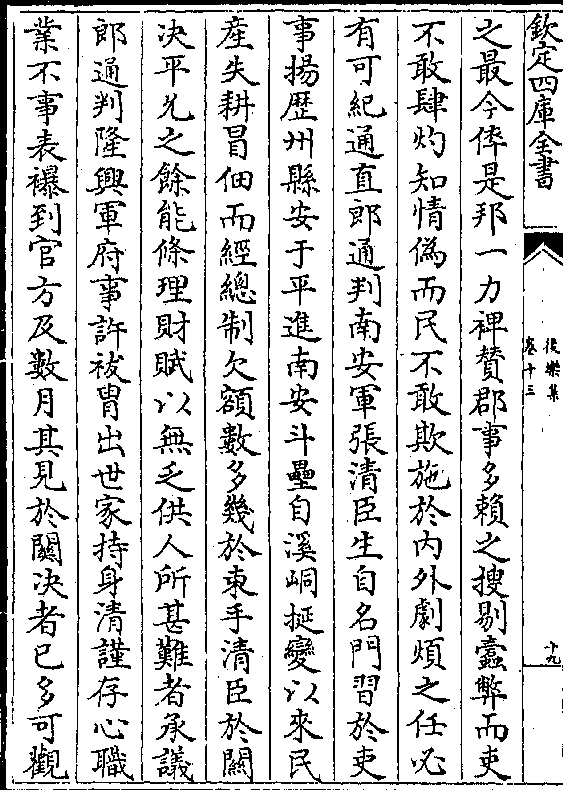 欽定四庫全書
後樂集
卷十三
十九
之最今倅是邦一力裨贊郡事多賴之搜剔蠹弊而吏
不敢肆灼知情偽而民不敢欺施於内外劇煩之任必
有可紀通直郎通判南安軍張清臣生自名門習於吏
事揚歴州縣安于平進南安斗壘自溪峒挻變以來民
産失耕冒佃而經總制欠額數多幾於束手清臣於闗
决平允之餘能條理財賦以無乏供人所甚難者承議
郎通判隆興軍府事許袚胄出世家持身清謹存心職
業不事表襮到官方及數月其見於闗决者已多可觀